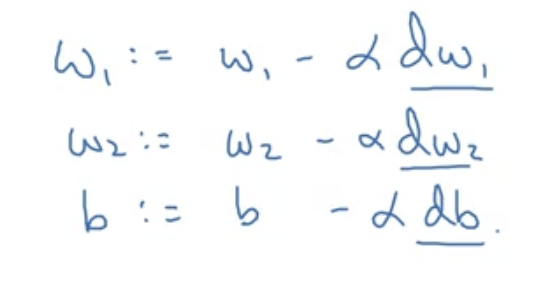 w₁ := w₁ - α dw₁
w₂ := w₂ - α dw₂
b := b - α db.